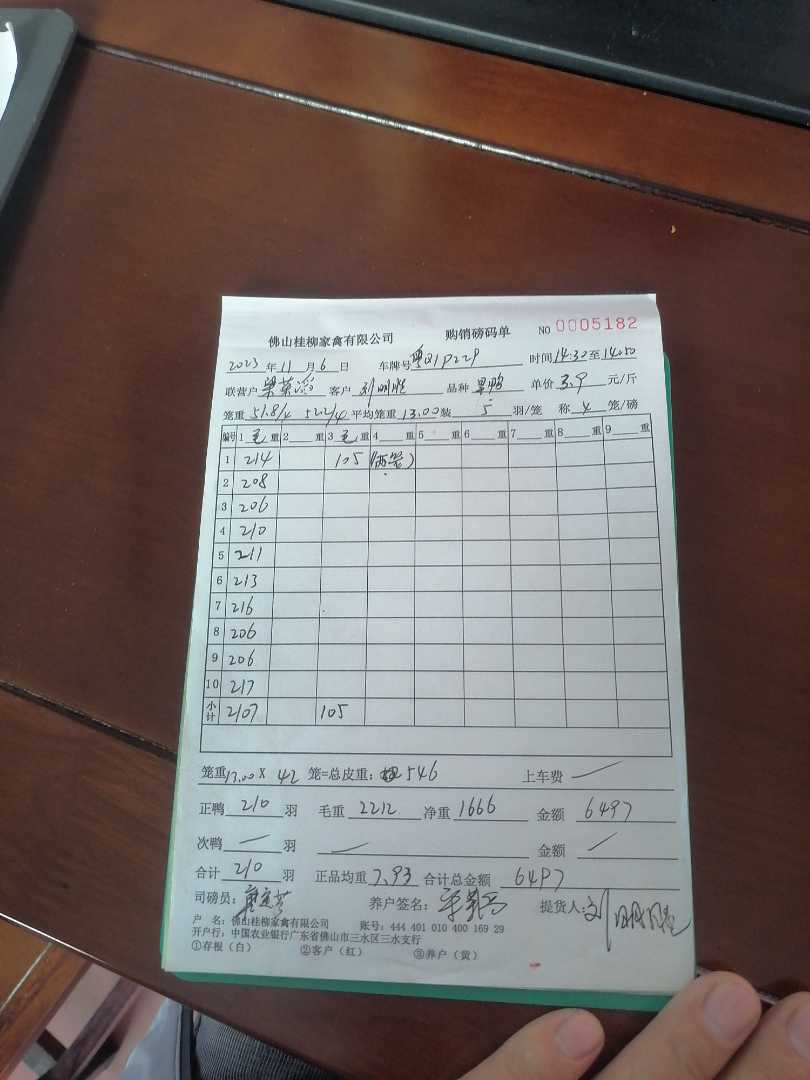 佛山桂柳家禽有限公司 购销磅码单 NO 0005182
2023年11月6日 车牌号 时间14:30至14:50
联营户 客户 品种 单价3.9元/斤
笼重51.8/4 52.2/4 平均笼重13.00装5羽/笼 称4笼/磅
编号 1毛重 2重 3毛重 4重 5重 6重 7重 8重 9重
1 214 105 (两笼)
2 208
3 206
4 210
5 211
6 213
7 216
8 206
9 206
10 217
小计 2107 105
笼重13.00X 42笼=总皮重:546 上车费 /
正鸭210羽 毛重2212 净重1666 金额6497
次鸭/羽 / 金额 /
合计210羽 正品均重7.93 合计总金额6497
司磅员: 养户签名: 提货人:
户 名:佛山桂柳家禽有限公司 账号:444 401 010 400 169 29
开户行:中国农业银行广东省佛山市三水区三水支行
①存根(白) ②客户(红) ③养户(黄)